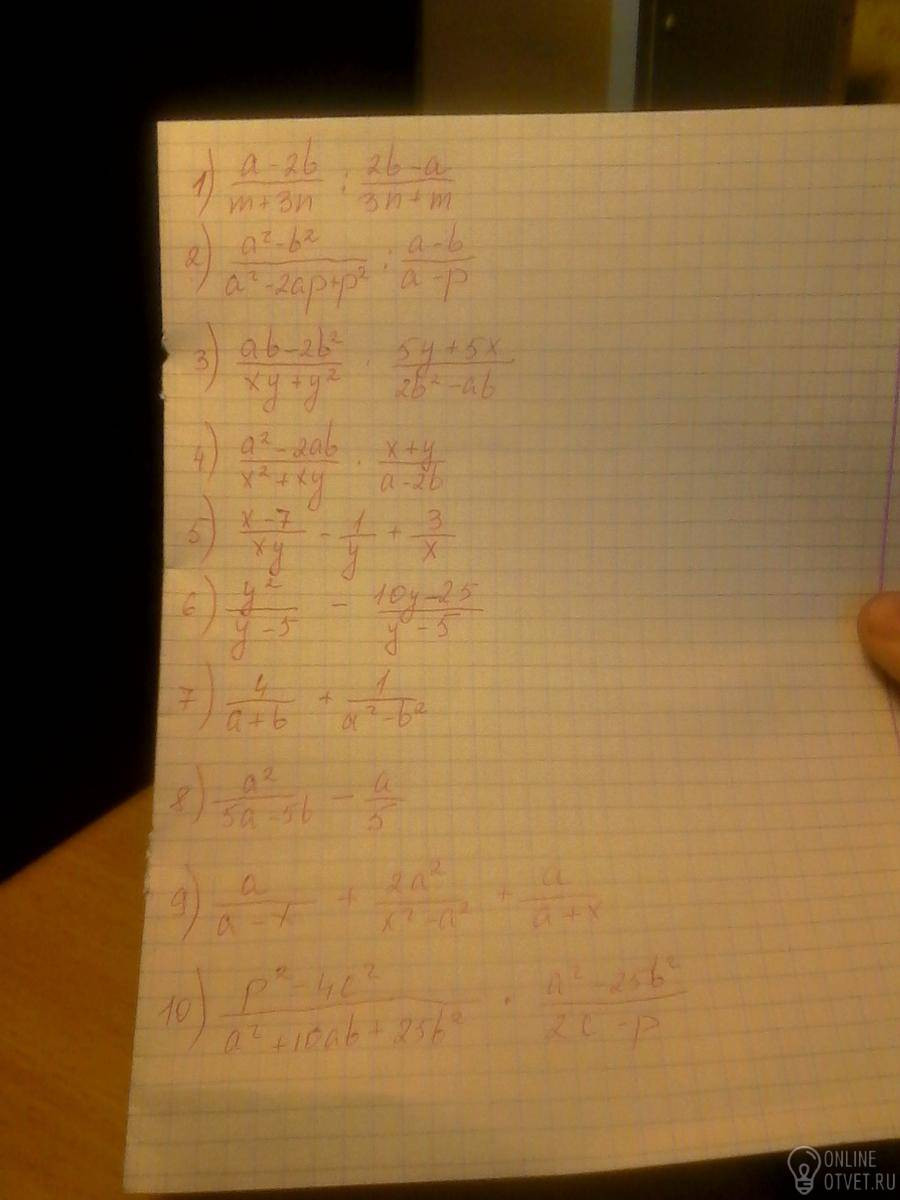 1) \frac{a-2b}{m+3n} : \frac{2b-a}{3n+m}
2) \frac{a²-b²}{a²-2ap+p²} : \frac{a-b}{a-p}
3) \frac{ab-2b²}{xy+y²} · \frac{5y+5x}{2b²-ab}
4) \frac{a²-2ab}{x²+xy} · \frac{x+y}{a-2b}
5) \frac{x-7}{xy} - \frac{1}{y} + \frac{3}{x}
6) \frac{y²}{y-5} - \frac{10y-25}{y-5}
7) \frac{4}{a+b} + \frac{1}{a²-b²}
8) \frac{a²}{5a-5b} - \frac{a}{5}
9) \frac{a}{a-x} + \frac{2a²}{x²-a²} + \frac{a}{a+x}
10) \frac{p²-4c²}{a²+10ab+25b²} · \frac{a²-25b²}{2c-p}
ONLINE
OTVET.RU